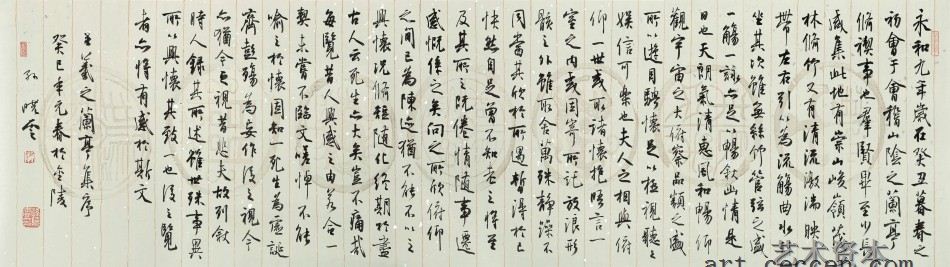 永和九年歲在癸丑暮春之
初會于會稽山陰之蘭亭
脩禊事也羣賢畢至少長
咸集此地有崇山峻嶺茂
林脩竹又有清流激湍映
帶左右引以為流觴曲水
坐其次雖無絲竹管弦之盛
一觴一詠亦足以暢敘幽情是
日也天朗氣清惠風和暢仰
觀宇宙之大俯察品類之盛
所以遊目騁懷足以極視聽之
娛信可樂也夫人之相與俯
仰一世或取諸懷抱悟言一
室之內或因寄所託放浪形
骸之外雖取舍萬殊靜躁不
同當其欣於所遇暫得於己
快然自足曾不知老之將至
及其所之既倦情隨事遷
感慨係之矣向之所欣俯仰
之間已為陳迹猶不能不以之
興懷況脩短隨化終期於盡
古人云死生亦大矣豈不痛哉
每覽昔人興感之由若合一
契未嘗不臨文嗟悼不能
喻之於懷固知一死生為虛誕
齊彭殤為妄作後之視今
亦猶今之視昔悲夫故列敘
時人錄其所述雖世殊事異
所以興懷其致一也後之覽
者亦將有感於斯文
王羲之蘭亭集序
癸巳年元春於金陵
孫曉雲
艺术资本